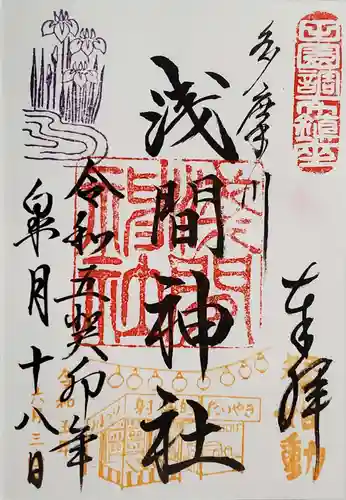 多摩川
奉拝
浅間神社
令和五癸卯年
皐月十八日
浅間神社
たいやき